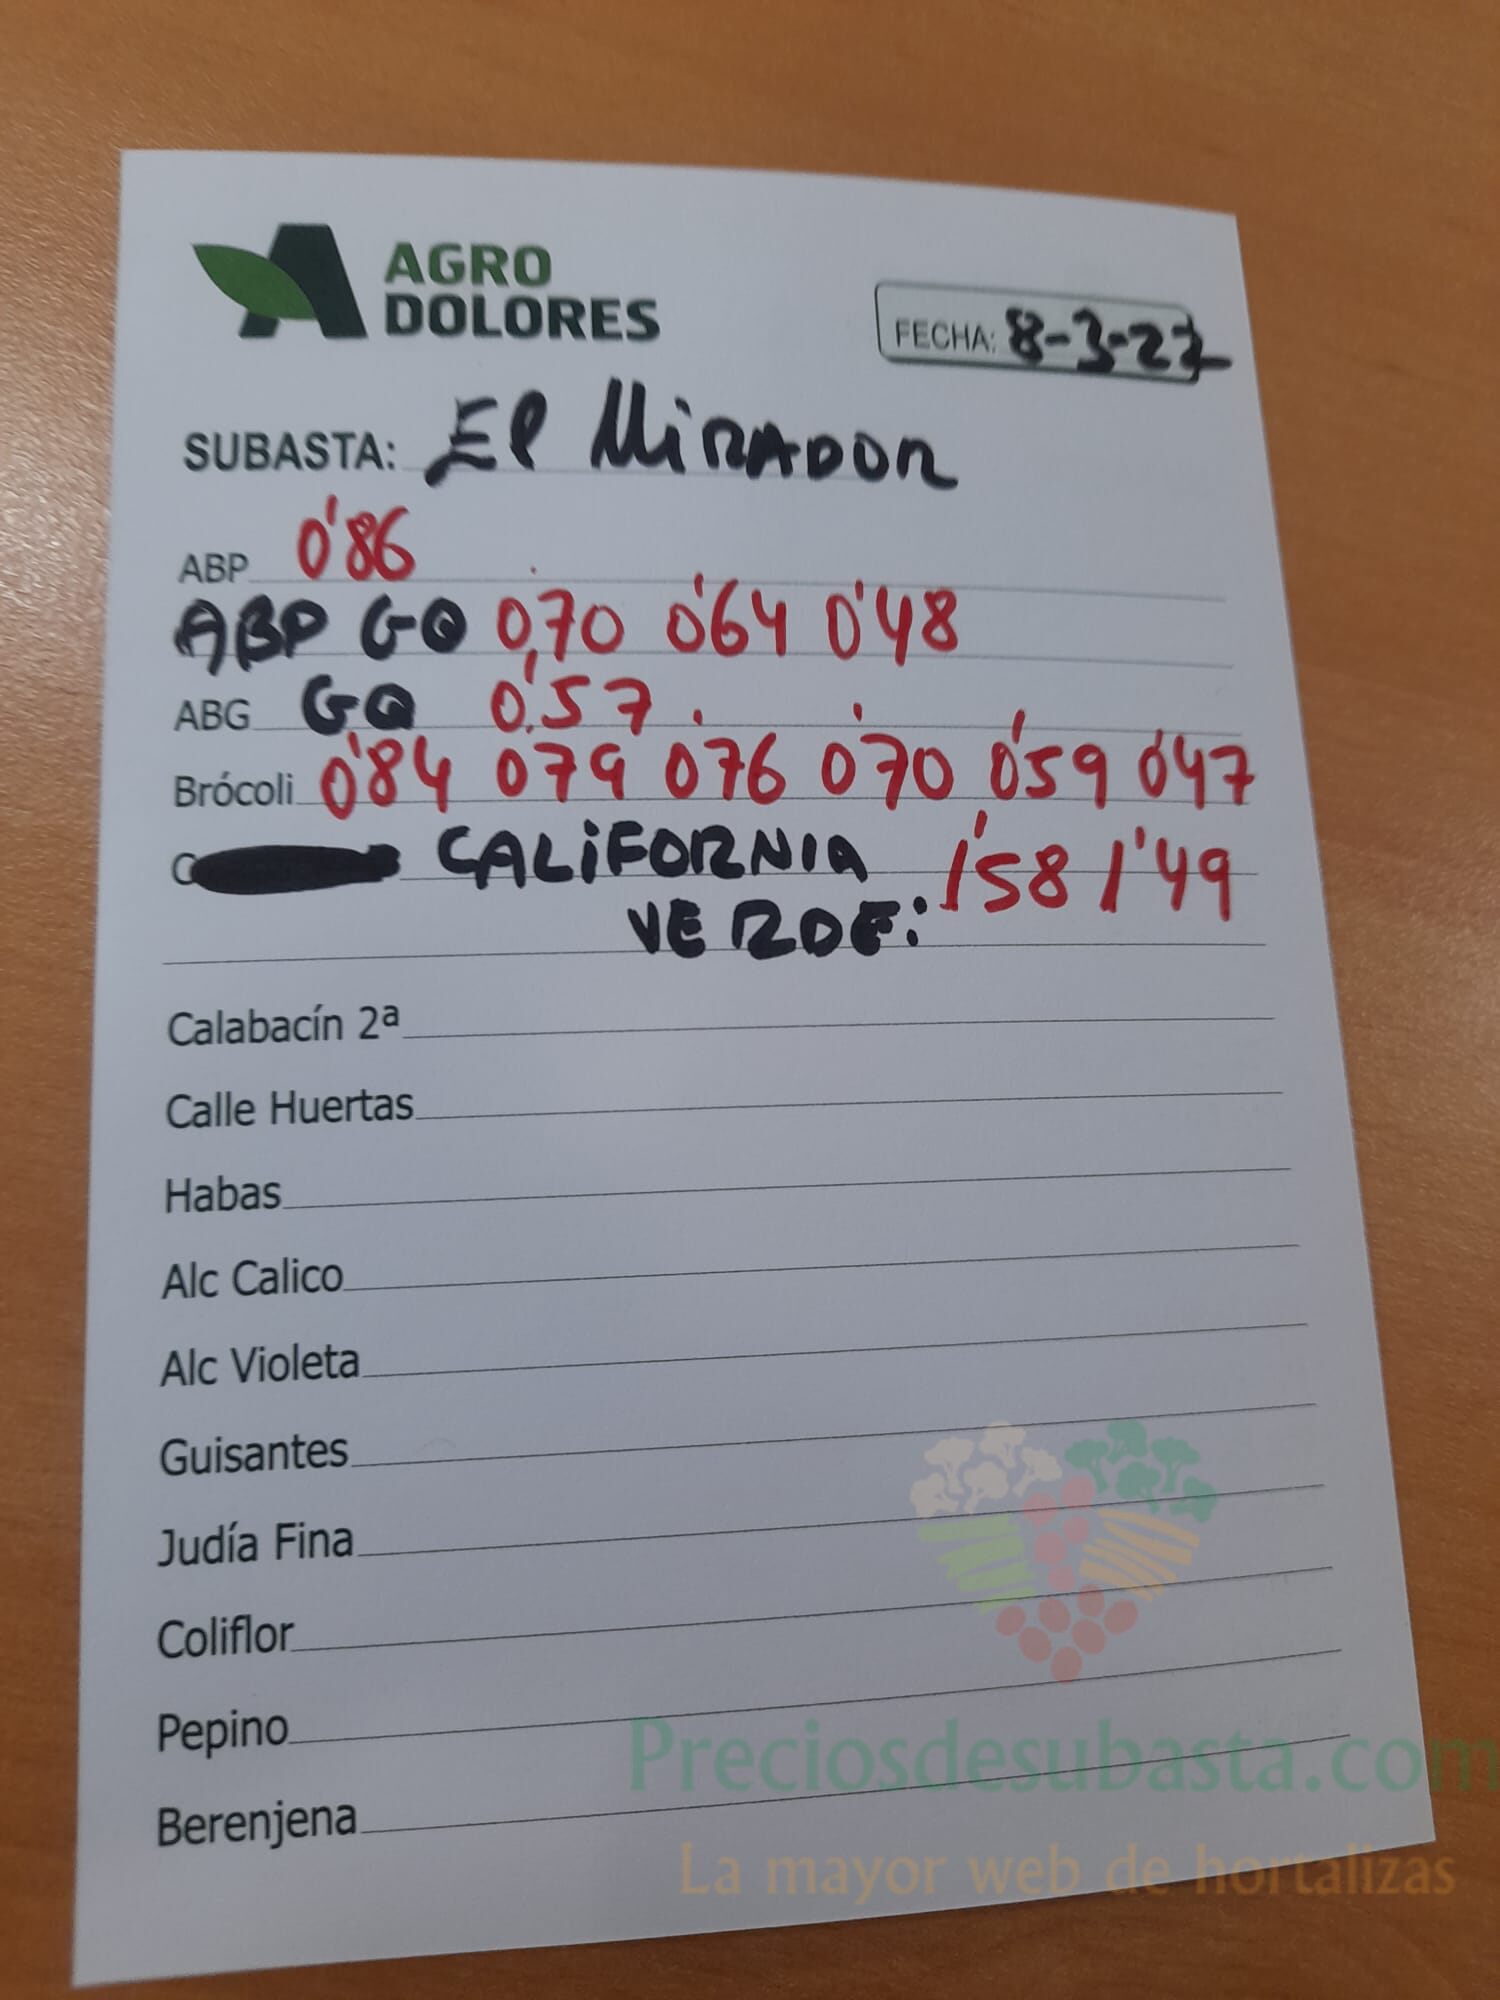 AGRO
DOLORES
FECHA: 8-3-22
SUBASTA: El MiRADOR
ABP 0'86
ABP GQ 0,70 0'64 0'48
ABG GQ 0'57
Brócoli 0'84 0'79 0'76 0'70 0'59 0'47
C CALiFORNIA 1'58 1'49
VERDE:
Calabacín 2ª
Calle Huertas
Habas
Alc Calico
Alc Violeta
Guisantes
Judía Fina
Coliflor
Pepino
Preciosdesubasta.com
Berenjena
La mayor web de hortalizas